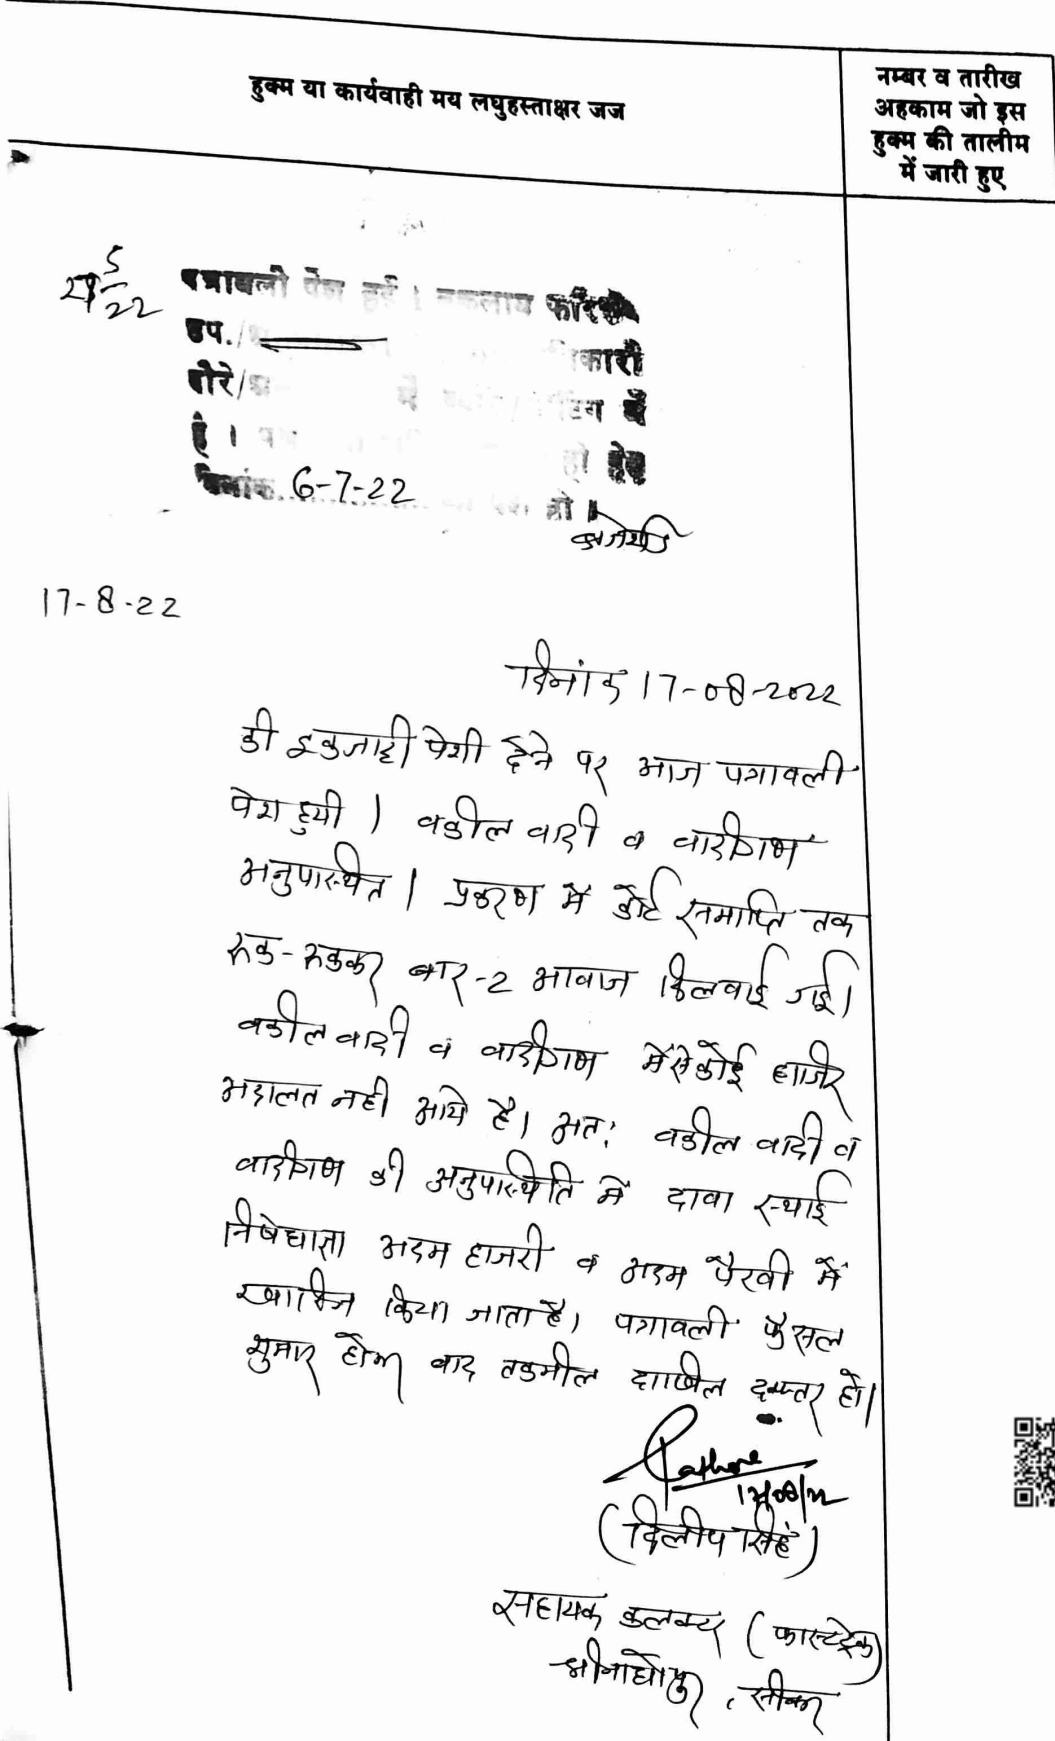 हुक्म या कार्यवाही मय लघुहस्ताक्षर जज
नम्बर व तारीख
अहकाम जो इस
हुक्म की तालीम
में जारी हुए
पत्रावली पेश हुई।
उप./
दौरे/
है।
दिनांक 6-7-22 हो।
17-8-22
दिनांक 17-08-2022
की इकजाही पेशी देने पर आज पत्रावली
पेश हुयी। वकील वादी व वादीगण
अनुपस्थित। प्रकरण में कोर्ट समाप्ति तक
रूक-रूककर बार-2 आवाज दिलवाई गई।
वकील वादी व वादीगण में से कोई हाजिर
अदालत नही आये है। अत: वकील वादी व
वादीगण की अनुपस्थिति में दावा स्थाई
निषेधाज्ञा अदम हाजरी व अदम पैरवी में
खारिज किया जाता है। पत्रावली फैसल
सुमार होकर बाद तकमील दाखिल दफ्तर हो।
Rathore
17/08/22
(दिलीप सिंह)
सहायक कलक्टर (फास्टट्रेक)
श्रीमाधोपुर, सीकर